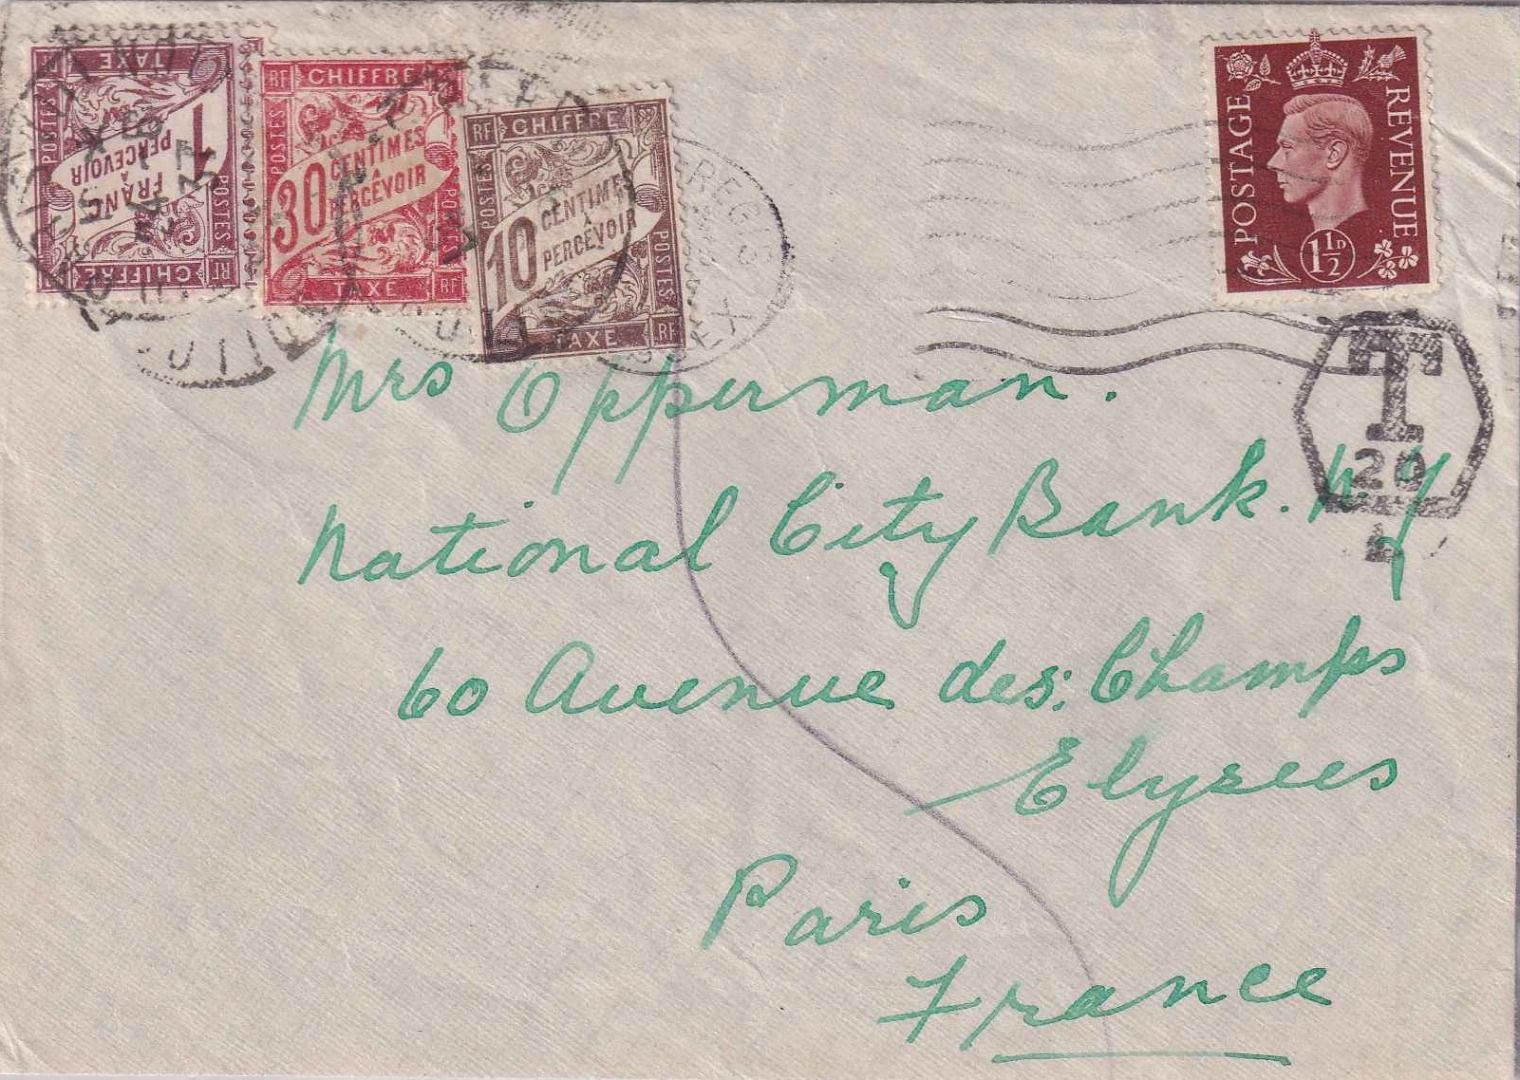 TAXE
1
FRANC
À
PERCEVOIR
POSTES
POSTES
CHIFFRE
RF
RF
CHIFFRE
30
CENTIMES
À
PERCEVOIR
POSTES
POSTES
TAXE
RF
RF
CHIFFRE
10
CENTIMES
À
PERCEVOIR
POSTES
POSTES
TAXE
RF
POSTAGE
REVENUE
1½D
T
20
Mrs Opperman.
National City Bank. N.Y
60 Avenue des: Champs
Elysees
Paris
France